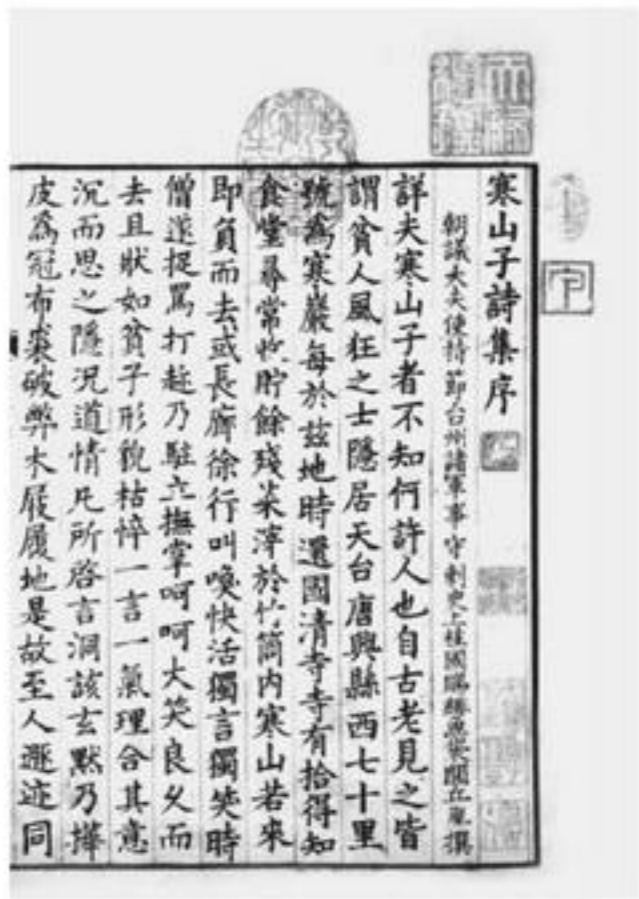 寒山子詩集序
朝議大夫使持節台州諸軍事守刺史上柱國賜緋魚袋閭丘胤撰
詳夫寒山子者不知何許人也自古老見之皆
謂貧人風狂之士隱居天台唐興縣西七十里
號為寒巖每於茲地時還國清寺寺有拾得知
食堂尋常收貯餘殘菜滓於竹筒內寒山若來
即負而去或長廊徐行叫喚快活獨言獨笑時
僧遂捉罵打趁乃駐立撫掌呵呵大笑良久而
去且狀如貧子形貌枯悴一言一氣理合其意
沉而思之隱況道情凡所啓言洞該玄默乃樺
皮為冠布裘破弊木屐履地是故至人遯迹同